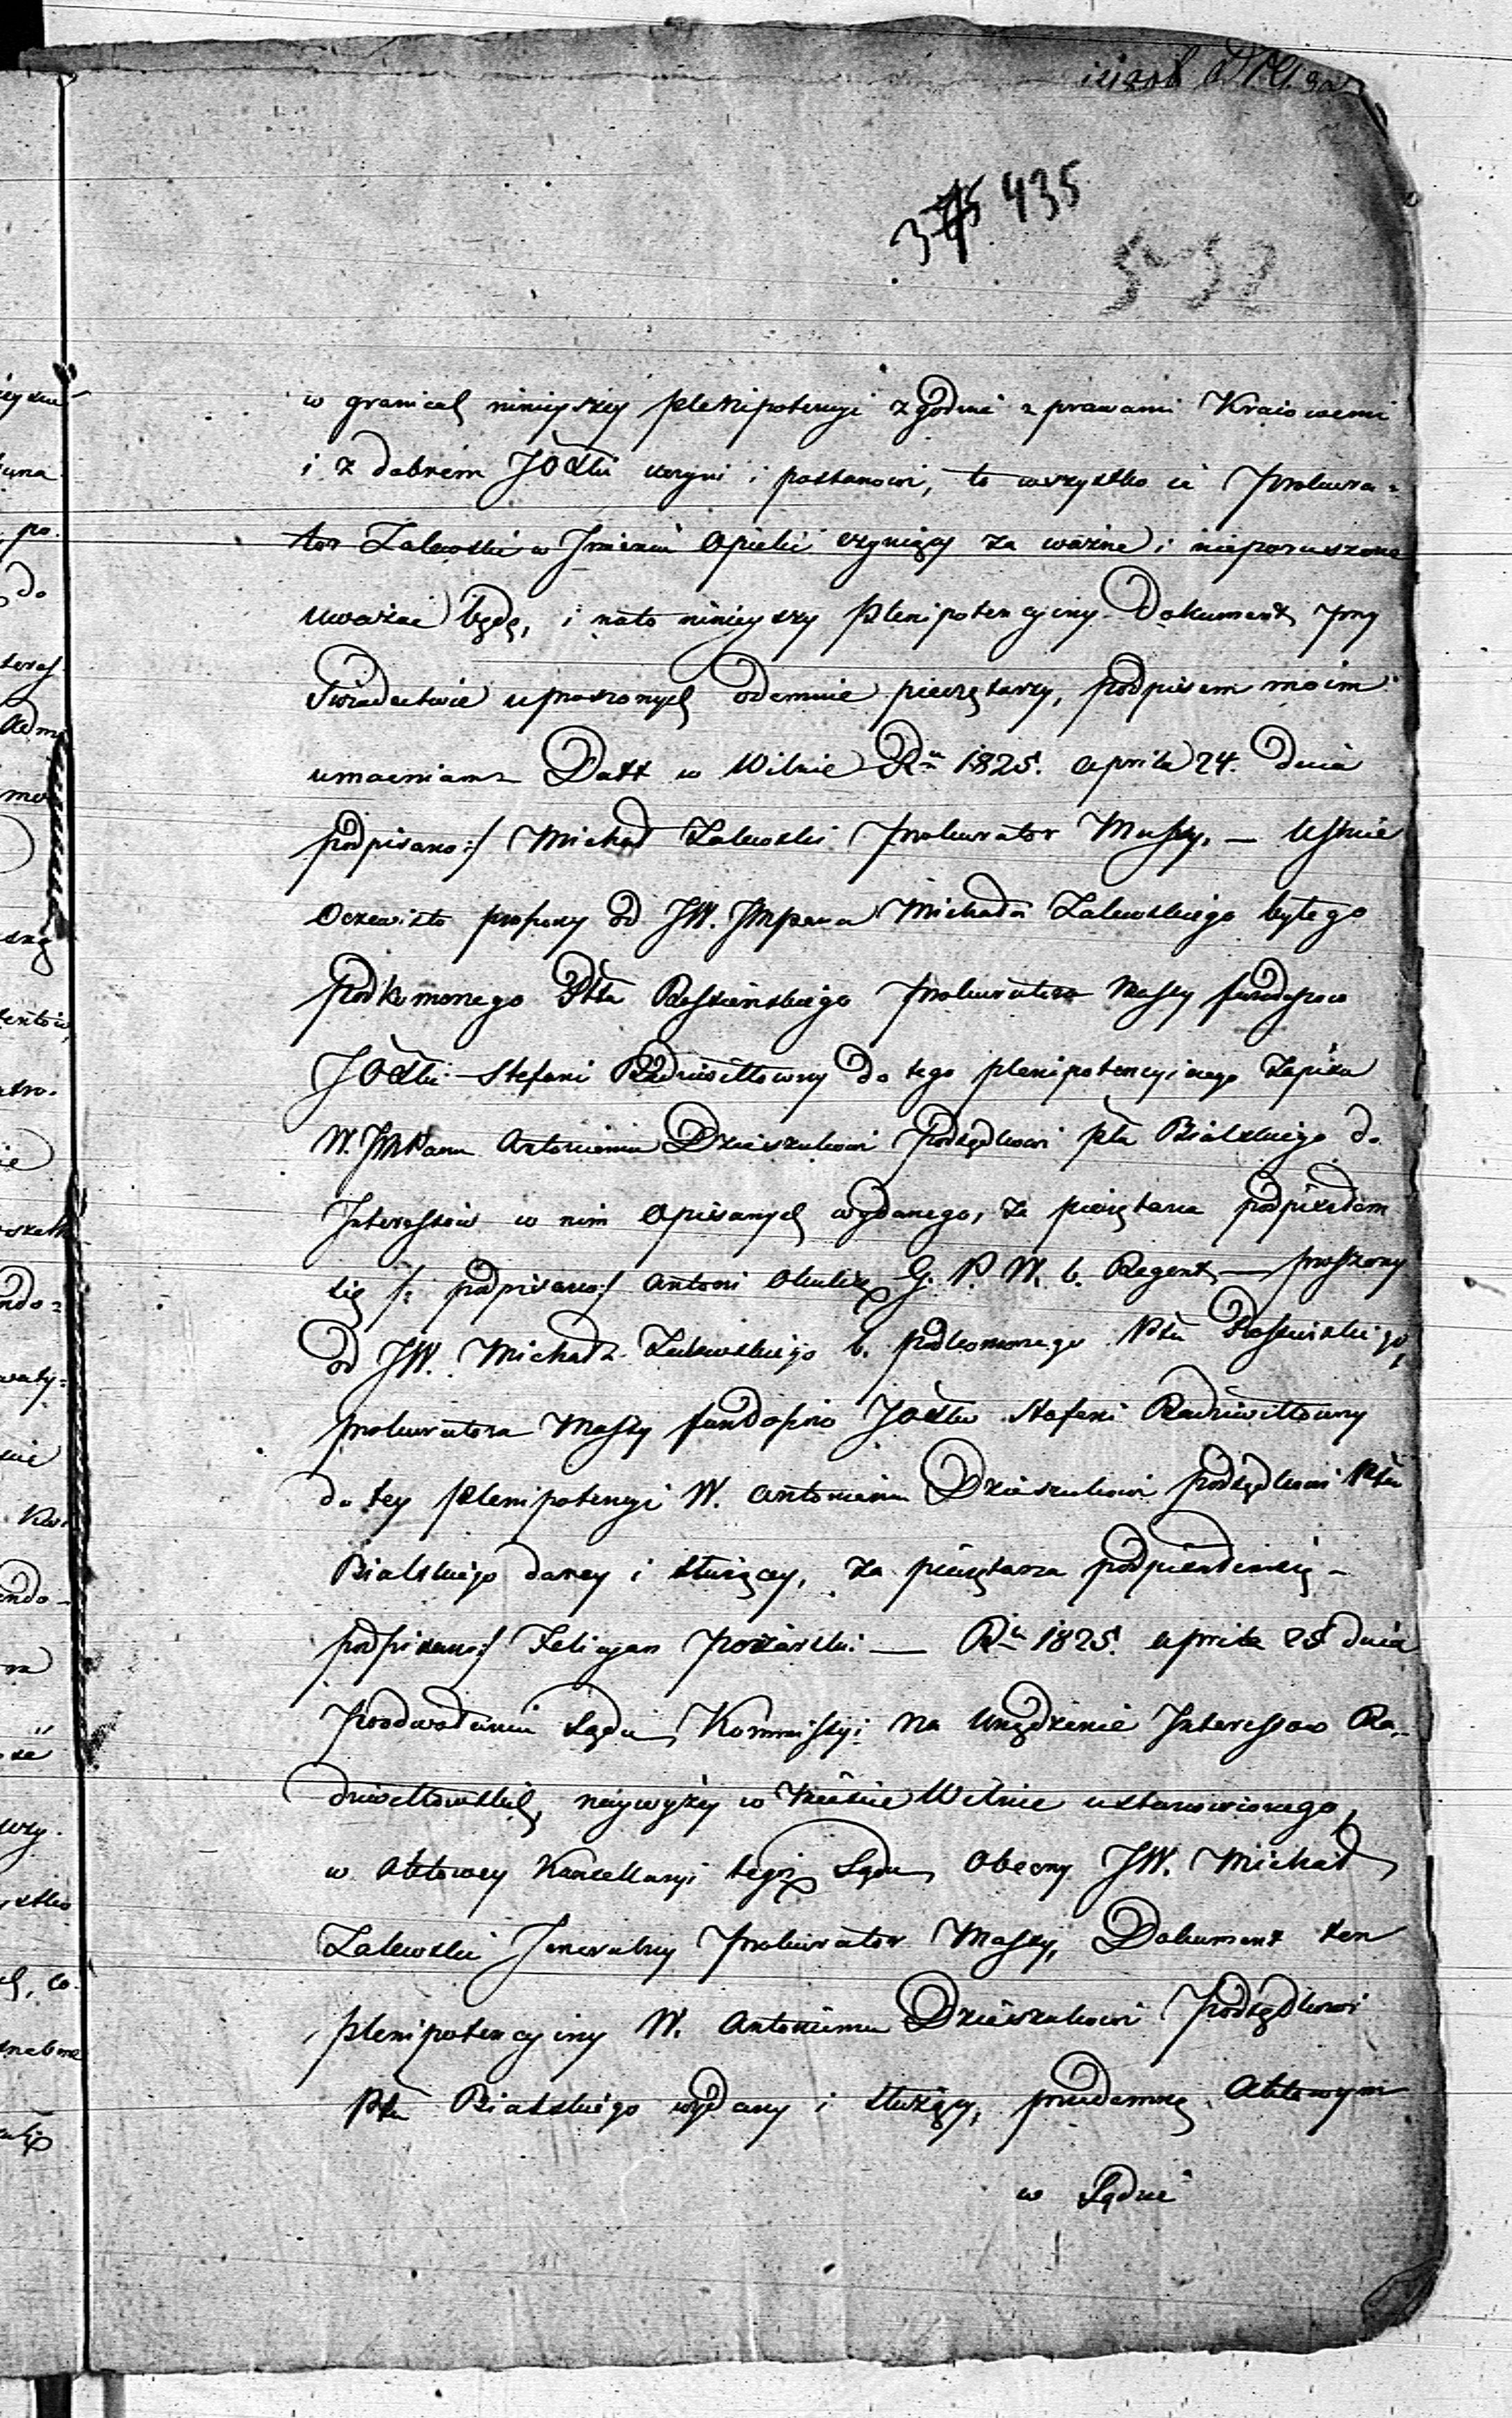 435
w granicach ninieyszey plenipotencyi zgodnie z prawami Kraiowemi
i z dobrem JOXtki uczyni i postanowi, to wszystko ia Prokura-
tor Zalewski w Jmieniu Opieki czyniący za ważne i nieporuszone
uważać będę, i nato ninieyszy Plenipotencyiny Dokument przy
Świadectwie uproszonych odemnie pieczętarzy, podpisem moim
umacniam Datt w Wilnie Rku 1825. Aprila 24. dnia
podpisano:/ Michał Zalewski Prokurator Massy. — Ustnie
Oczewisto proszony od JW. JMPana Michała Zalewskiego byłego
Podkomorzego Pttu Rossieńskiego Prokuratora Massy funduszow
JOXtki Stefani Radziwiłłowny do tego plenipotencyinego Zapisu
W. JMPanu Antoniemu Dzieszukowi Podsędkowi pttu Bialskiego do
Jnteressów w nim Opisanych wydanego, za pieczętarza podpisałem
się /: podpisano:/ Antoni Okulicz G. P. W. b. Regent — proszony
od JW. Michała Zalewskiego b. podkomorzego Pttu Rossieńskiego,
prokuratora Massy funduszow JOXtki Stefani Radziwiłłowny
do tey plenipotencyi W. Antoniemu Dzieszukowi podsędkowi Pttu
Bialskiego daney i służącey, za pieczętarza podpisałem się —
podpisano:/ Felicyan Pożarski — Rku 1825. Aprila 25 dnia
Przed Aktami Sądu Kommissyi na Urządzenie Jnteressow Ra-
dziwiłłowskich, naywyżey w Mieście Wilnie ustanowionego,
w Aktowey Kancellaryi tegoż Sądu Obecny JW. Michał
Zalewski Jeneralny Prokurator Massy, Dokument ten
plenipotencyiny W. Antoniemu Dzieszukowi Podsędkowi
Pttu Bialskiego wydany i służący, przedemną Aktowym
w Sądzie